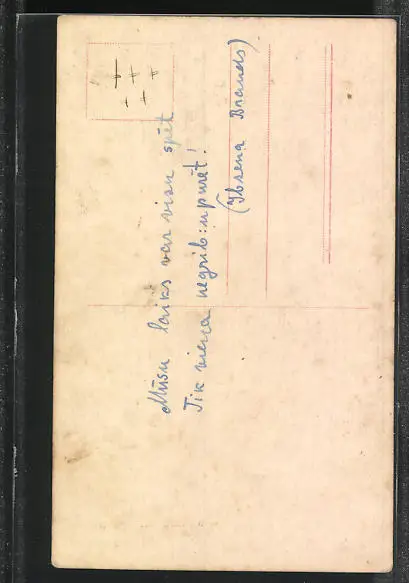 Mūsu laiks var visu spēt
Tik viena negrib: upurēt!
(Ibsena Brands)